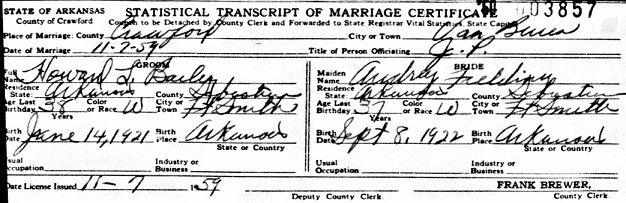 STATE OF ARKANSAS STATISTICAL TRANSCRIPT OF MARRIAGE CERTIFICATE 003857
County of Crawford Coupon to be Detached by County Clerk and Forwarded to State Registrar Vital Statistics, State Capitol
Place of Marriage: County Crawford City or Town Van Buren
Date of Marriage 11-7-59 Title of Person Officiating J. P.
GROOM BRIDE
Full Name Howard L. Bailey Maiden Name Audrey Fielding
Residence State: Arkansas County Sebastian Residence State: Arkansas County Sebastian
Age Last Birthday 38 Years Color or Race W City or Town Ft Smith Age Last Birthday 37 Years Color or Race W City or Town Ft Smith
Birth Date June 14, 1921 Birth Place Arkansas Birth Date Sept 8, 1922 Birth Place Arkansas
State or Country State or Country
Usual Occupation Industry or Business Usual Occupation Industry or Business
Date License Issued 11-7 1959 FRANK BREWER,
Deputy County Clerk County Clerk.